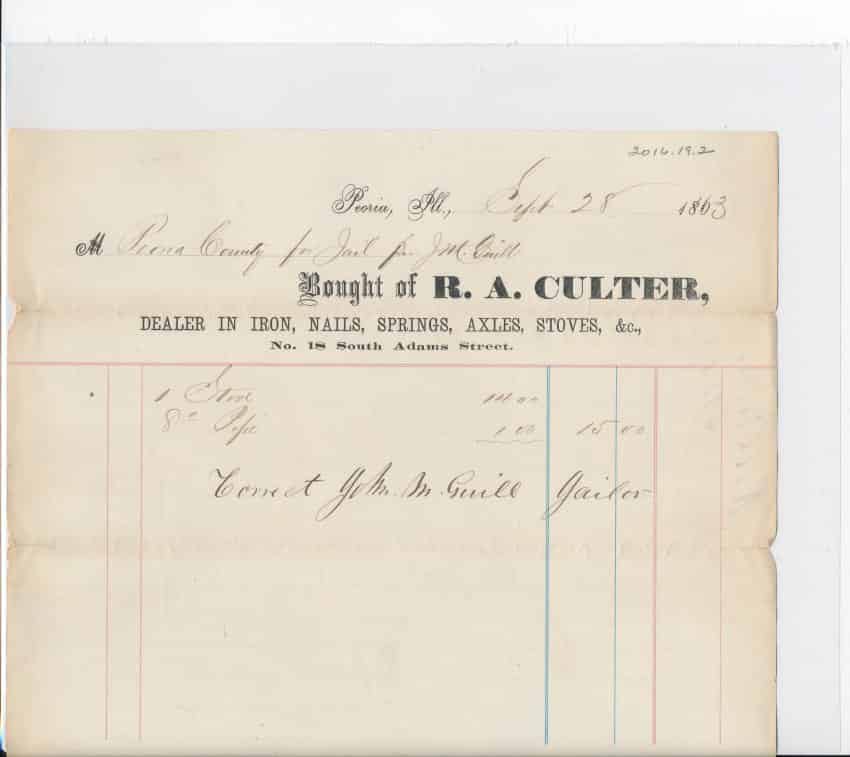 2016.19.2
Peoria, Ill., Sept 28 1863
M Peoria County for Jail per J M. Guill
Bought of R. A. CULTER,
DEALER IN IRON, NAILS, SPRINGS, AXLES, STOVES, &c.,
No. 18 South Adams Street.
1 Stove 14.00
8 Pipe 1.00 15 00
Correct John M. Guill Jailor